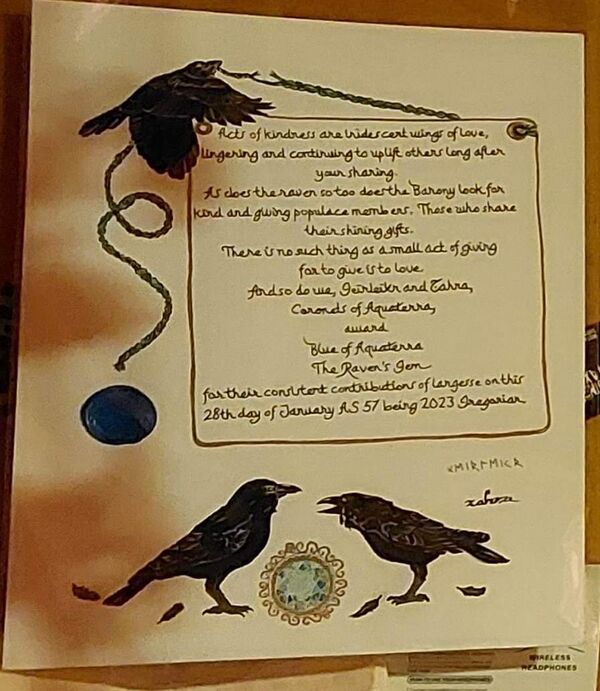 Acts of kindness are iridescent wings of love,
lingering and continuing to uplift others long after
your sharing.
As does the raven so too does the Barony look for
kind and giving populace members. Those who share
their shining gifts.
There is no such thing as a small act of giving
for to give is to love
And so do we, Geirleikr and Zahra,
Coronds of Aquaterra,
award
Blue of Aquaterra
The Raven's Gem
for their consistent contributions of largesse on this
28th day of January AS 57 being 2023 Gregorian
zahra
WIRELESS
HEADPHONES